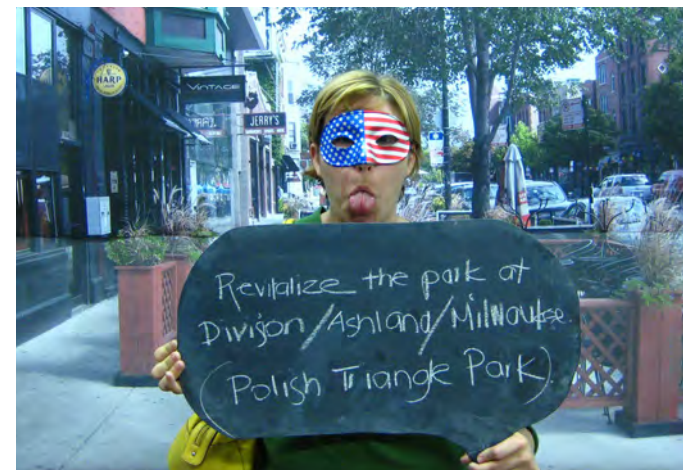 HARP
LAGER
VINTAGE
JERRY'S
Revitalize the park at
Division/Ashland/Milwaukee.
(Polish Triangle Park)